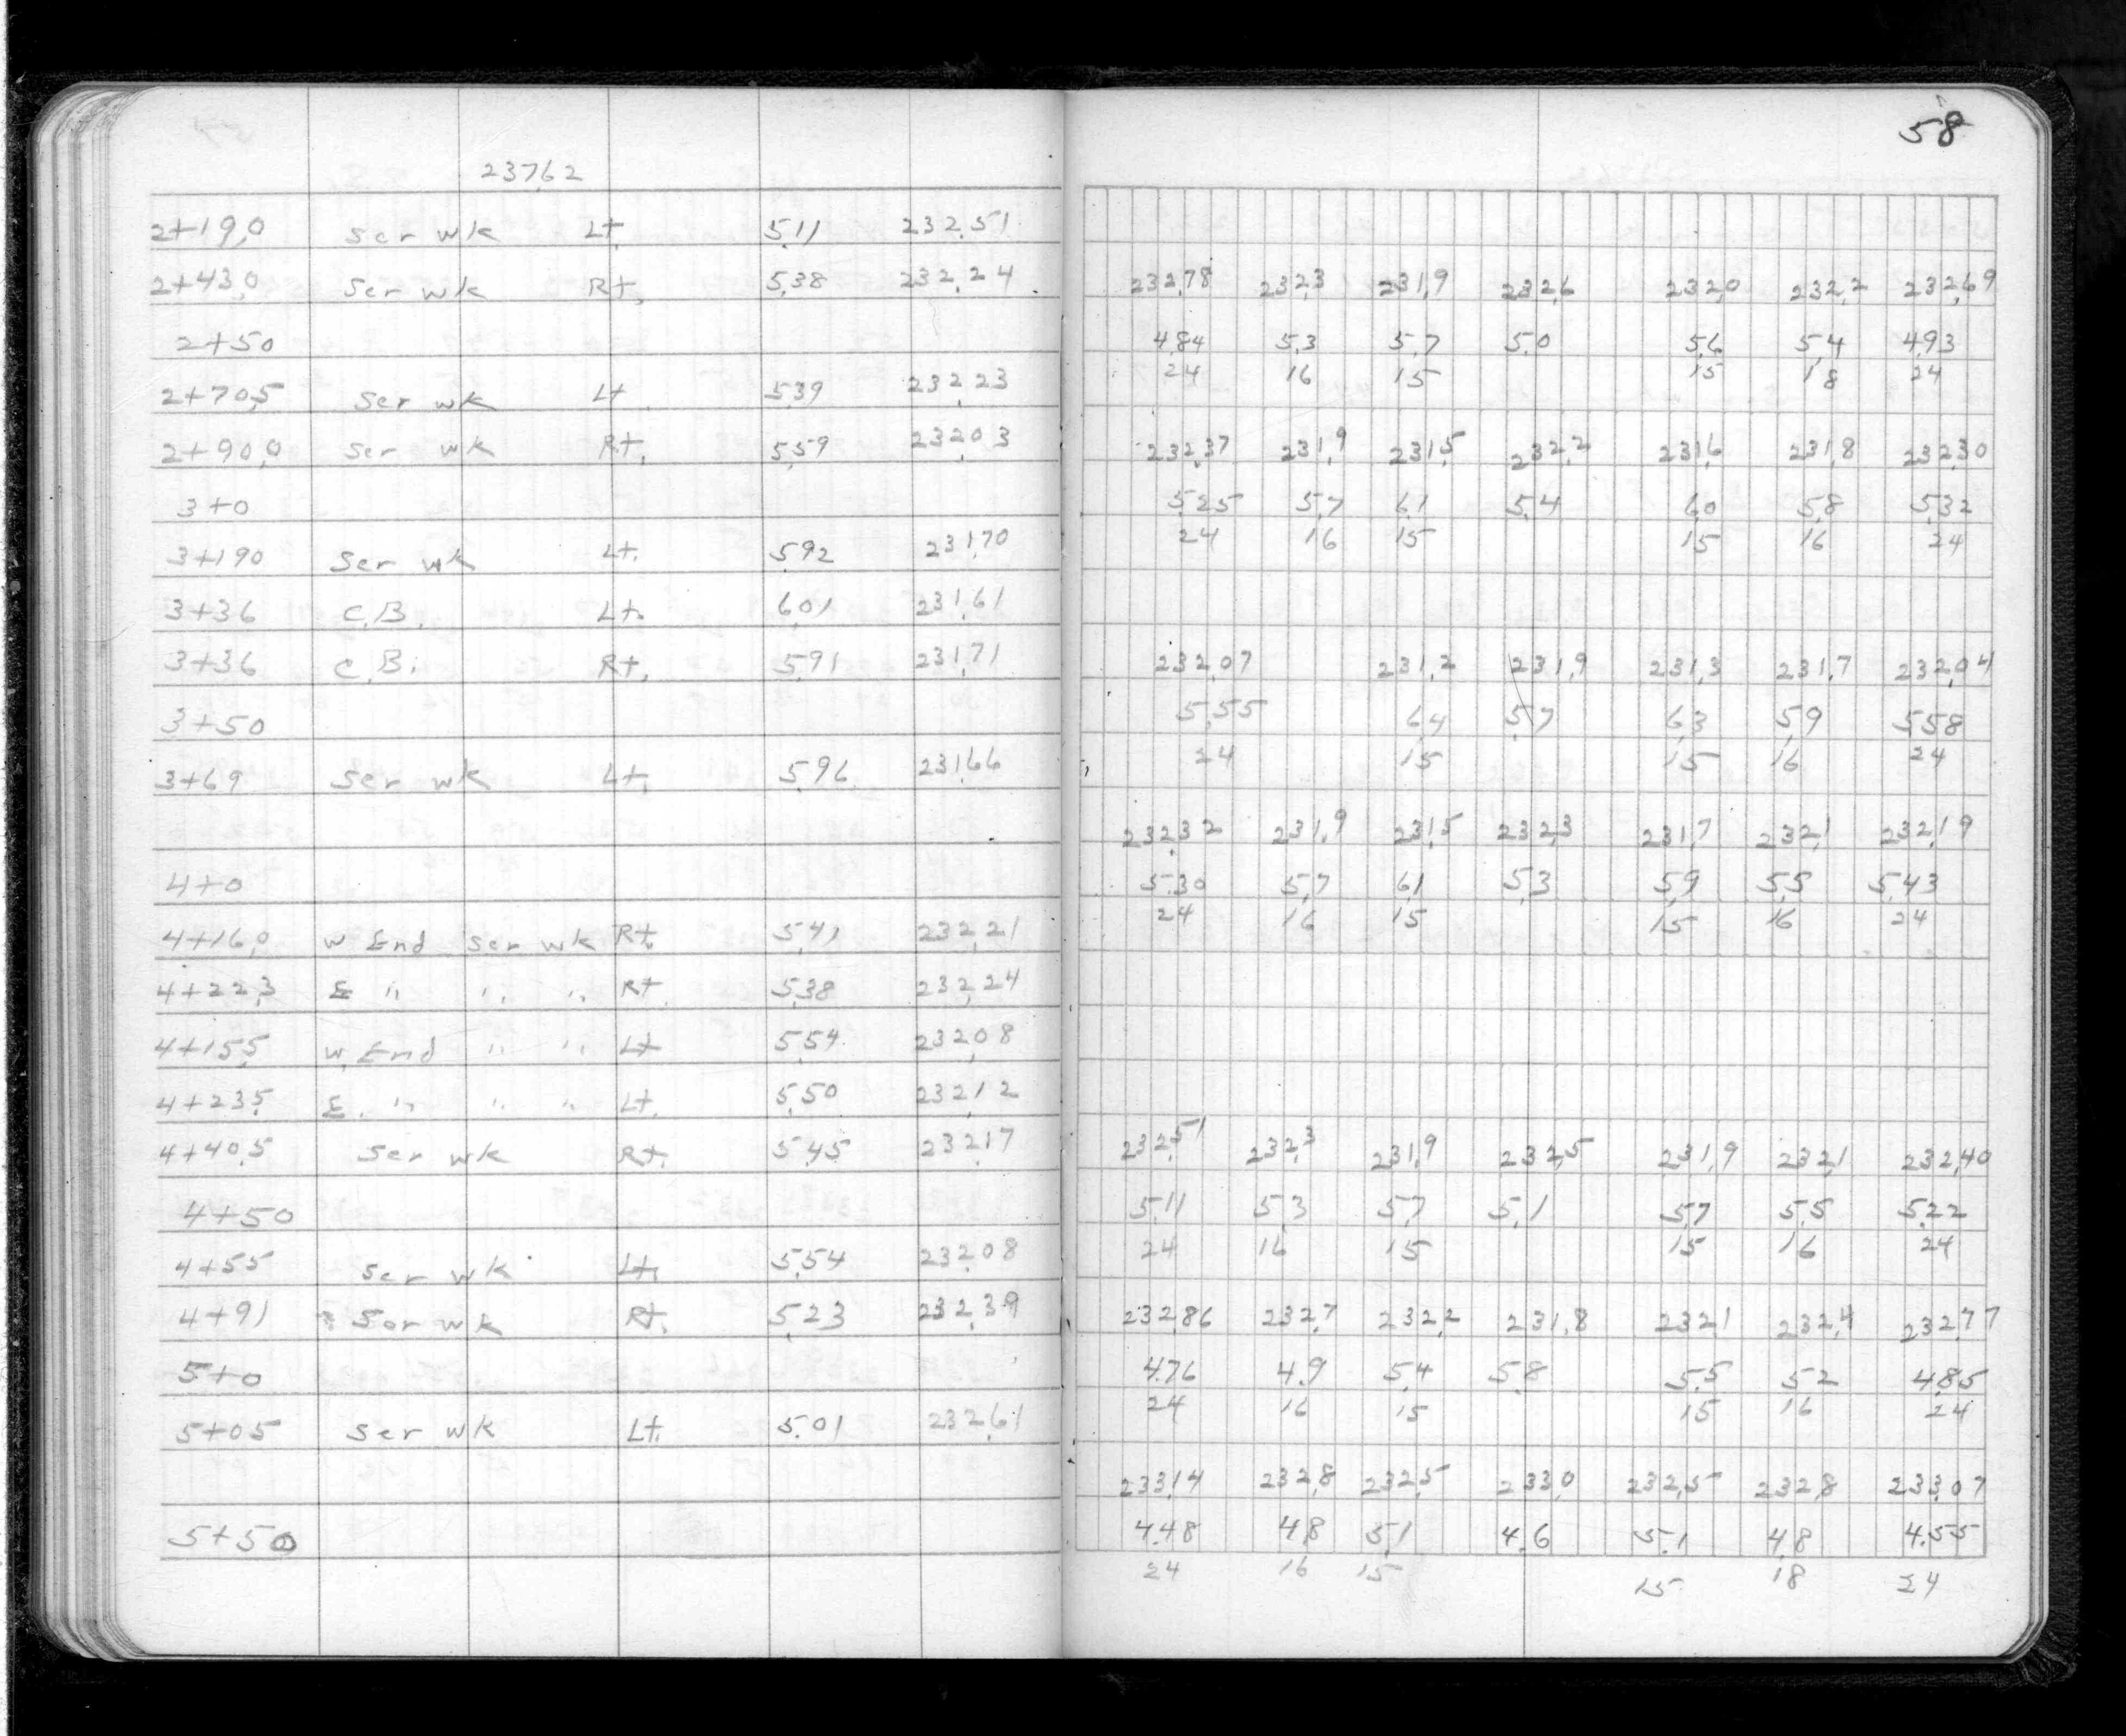 58
237.62
2+19.0 Ser wk Lt. 5.11 232.51
2+43.0 Ser wk Rt. 5.38 232.24
232.78 232.3 231.9 232.6 232.0 232.2 232.69
2+50
4.84 5.3 5.7 5.0 5.6 5.4 4.93
24 16 15 15 18 24
2+70.5 Ser wk Lt. 5.39 232.23
2+90.0 Ser wk Rt. 5.59 232.03
232.37 231.9 231.5 232.2 231.6 231.8 232.30
3+0
5.25 5.7 6.1 5.4 6.0 5.8 5.32
24 16 15 15 16 24
3+19.0 Ser wk Lt. 5.92 231.70
3+36 C.B. Lt. 6.01 231.61
3+36 C.B. Rt. 5.91 231.71
232.07 231.2 231.9 231.3 231.7 232.04
3+50
5.55 6.4 5.7 6.3 5.9 5.58
24 15 15 16 24
3+69 Ser wk Lt. 5.96 231.66
232.32 231.9 231.5 232.3 231.7 232.1 232.19
4+0
5.30 5.7 6.1 5.3 5.9 5.5 5.43
24 16 15 15 16 24
4+16.0 W End Ser wk Rt. 5.41 232.21
4+22.3 E " " " Rt. 5.38 232.24
4+15.5 W. End " " Lt 5.54 232.08
4+23.5 E. " " " Lt. 5.50 232.12
4+40.5 Ser wk Rt. 5.45 232.17
232.51 232.3 231.9 232.5 231.9 232.1 232.40
4+50
5.11 5.3 5.7 5.1 5.7 5.5 5.22
24 16 15 15 16 24
4+55 Ser wk Lt. 5.54 232.08
4+91 Ser wk Rt. 5.23 232.39
232.86 232.7 232.2 231.8 232.1 232.4 232.77
5+0
4.76 4.9 5.4 5.8 5.5 5.2 4.85
24 16 15 15 16 24
5+05 Ser wk Lt. 5.01 232.61
233.14 232.8 232.5 233.0 232.5 232.8 233.07
5+50
4.48 4.8 5.1 4.6 5.1 4.8 4.55
24 16 15 15 18 24